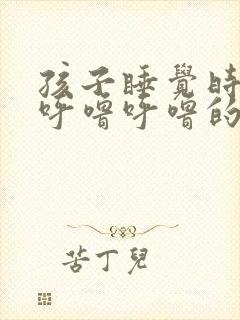 孩子睡覺時
呼嚕呼嚕的
苦丁兒